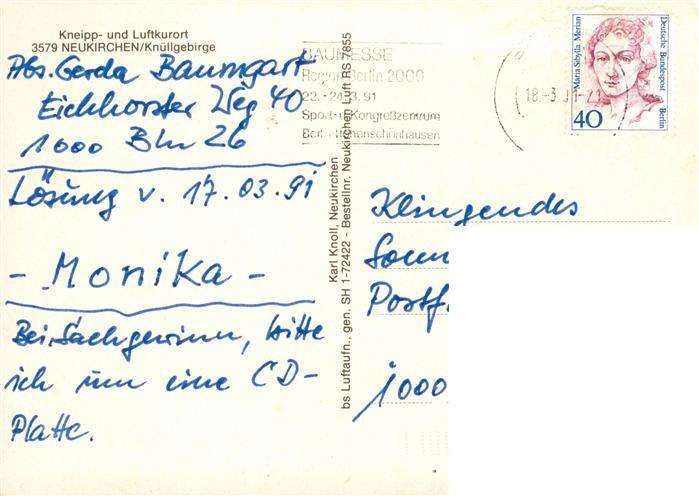 Kneipp- und Luftkurort
3579 NEUKIRCHEN/Knüllgebirge
Abs. Gerda Baumgart
Eichhorster Weg 40
1000 Bln 26
Lösung v. 17.03.91
- Monika -
Bei Sachgewinn, bitte
ich um eine CD-
Platte.
Karl Knoll, Neukirchen
bs Luftaufn., gen. SH 1-72422 - Bestellnr. Neukirchen Luft RS 7855
BAUMESSE
Region Berlin 2000
22.-24.3.91
Sport-u. Kongreßzentrum
Berlin-Hohenschönhausen
18.-3.91-2
Maria Sibylla Merian
Deutsche Bundespost
Berlin
40
Klingendes
Sonn
Postf
1000